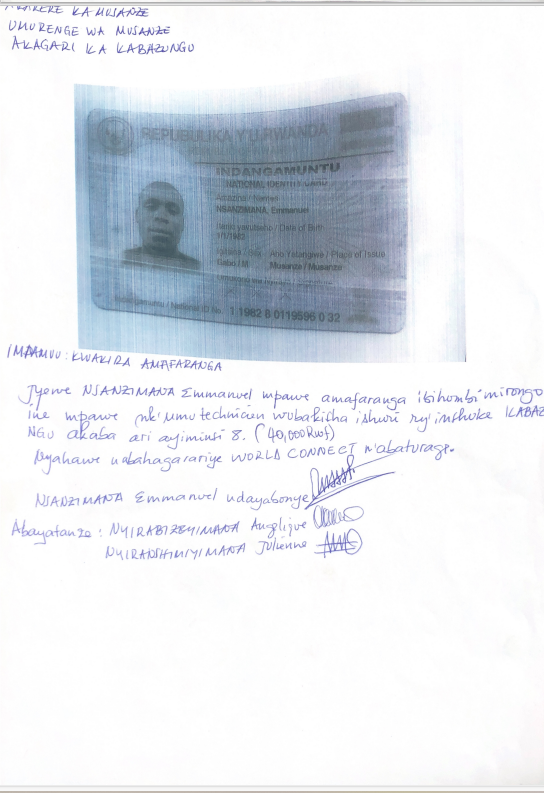 AKARERE KA MUSANZE
UMURENGE WA MUSANZE
AKAGARI KA KABAZUNGU
REPUBULIKA Y'U RWANDA
INDANGAMUNTU
NATIONAL IDENTITY CARD
Amazina / Names
NSANZIMANA, Emmanuel
Itariki yavutseho / Date of Birth
1/1/1982
Igitsina / Sex Aho Yatangiwe / Place of Issue
Gabo / M Musanze / Musanze
Indangamuntu / National ID No. 1 1982 8 0119596 0 32
IMPAMVU : KWAKIRA AMAFARANGA
Jyewe NSANZIMANA Emmanuel mpawe amafaranga ibihumbi mirongo
ine mpawe nk'umutechnicien wubakisha ishuri ry'inshuke KABAZ
NGU akaba ari ayiminsi 8. (40,000Rwf)
Nyahawe nabahagarariye WORLD CONNECT n'abaturage.
NSANZIMANA Emmanuel udayabonye
Abayatanze : NYIRABIZEYIMANA Angelique
NYIRANSHIMIYIMANA Julienne